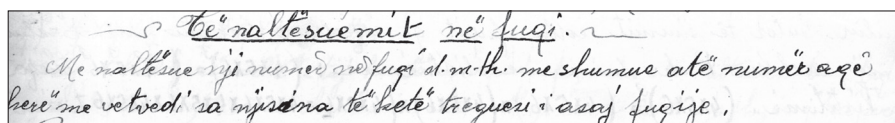 Të naltësuemit në fugi.
Me naltësue nji numër në fugi d.m.th. me shumue atë numër aqë
herë me vetvedi sa njisina të ketë treguesi i asaj fugije.